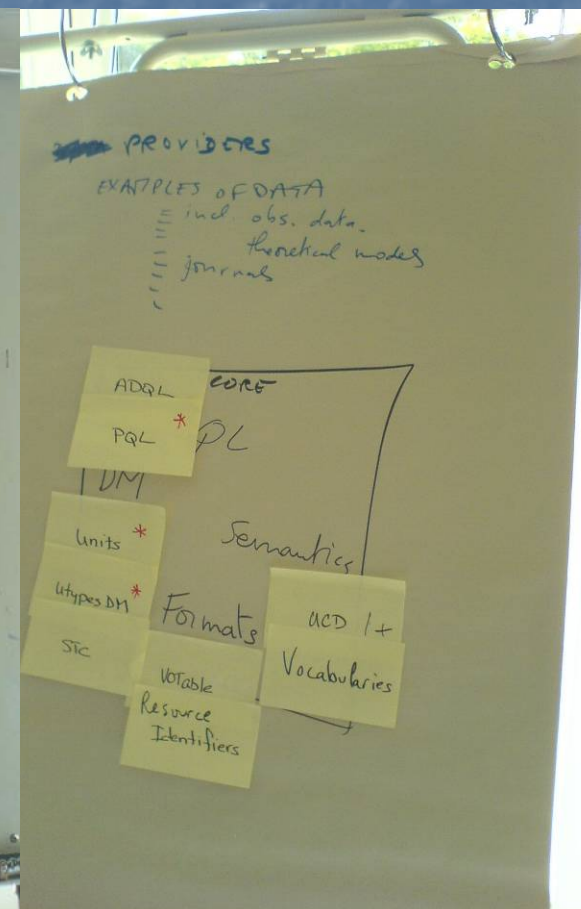 PROVIDERS
EXAMPLES OF DATA
incl. obs. data.
theoretical models
journals
ADQL
CORE
PQL *
QL
DM
Units *
Semantics
Utypes DM *
Formats
UCD 1+
STC
Vocabularies
VOTable
Resource
Identifiers